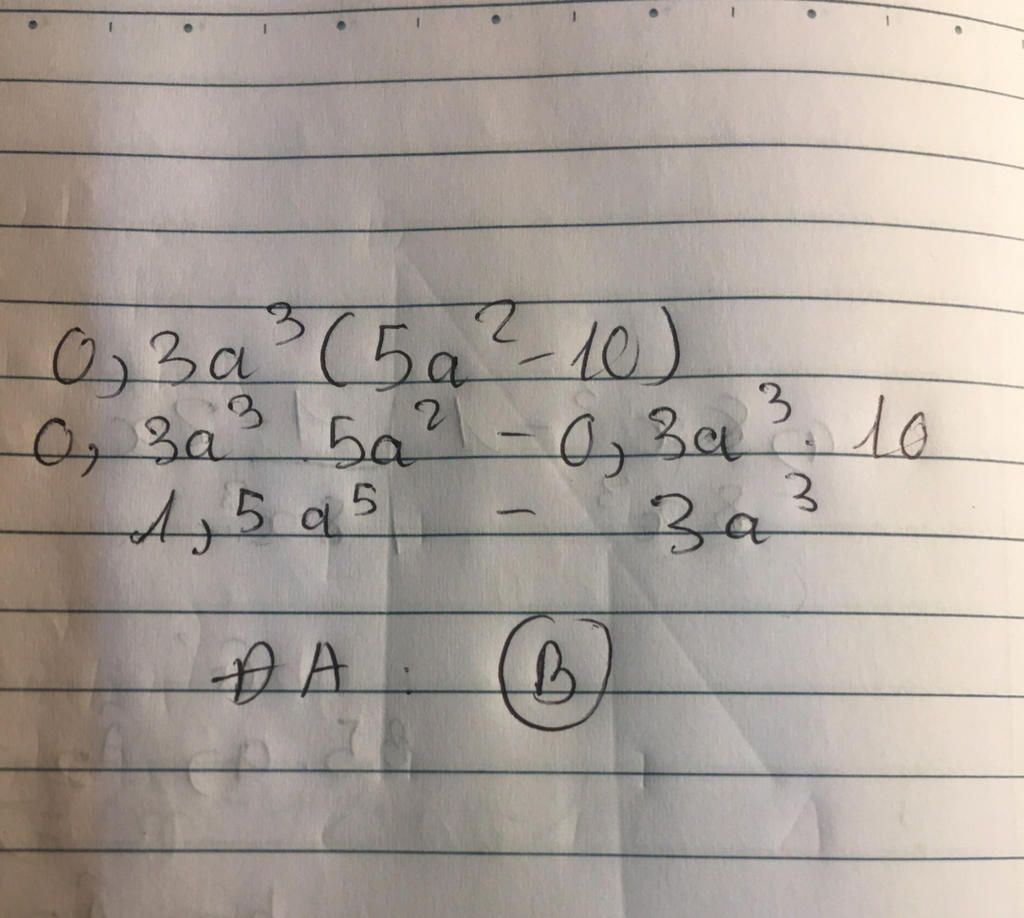 0,3a³(5a²-10)
0,3a³.5a² - 0,3a³.10
1,5a⁵ - 3a³
ĐA: B